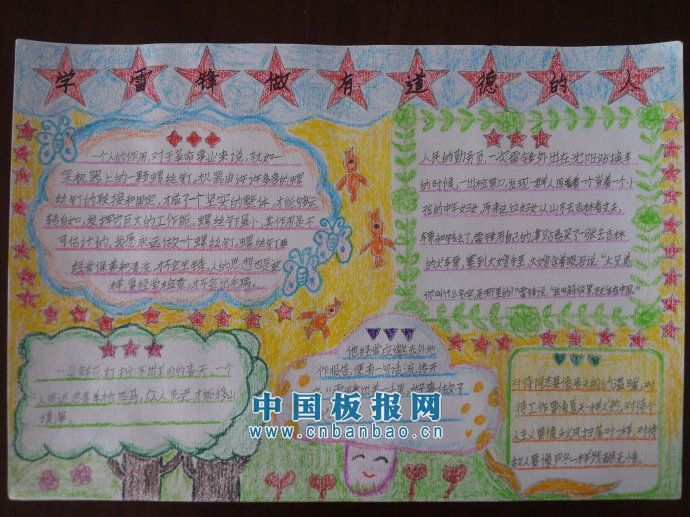 学雷锋做有道德的人
一个人的作用,对于革命事业来说,就如一
架机器上的一颗螺丝钉。机器由许许多多的螺
丝钉的联接和固定,才成了个坚实的整体,才能够运
转自如,发挥它巨大的工作能。螺丝钉虽小,其作用是不
可估计的。我愿永远做一个螺丝钉。螺丝钉要
经常保养和清洗,才不会生锈。人的思想也是这
样,要经常检查,才不会出毛病。
人民的勤务员,一次雷锋外出在沈阳站换车
的时候,一出检票口,发现一群人围着一个背着一个小
孩的中年妇女,原来这位妇女从山东去吉林看丈夫,
车票和钱丢了,雷锋用自己的津贴费买了一张去吉林
的火车票,塞到大嫂手里,大嫂含着眼泪说:“大兄弟
你叫什么名字,是哪里的?”雷锋说:“我叫解放军,就住在中国。”
一朵鲜花打扮不出美丽的春天,一个
人先进总是单枪匹马,众人先进才能移山
填海。
他经常应邀去外地
作报告,
对待同志要像春天般的温暖,对
待工作要像夏天一样火热,对待个
人主义要像秋风扫落叶一样,对待
敌人要像严冬一样残酷无情。
中国板报网
www.cnbanbao.cn